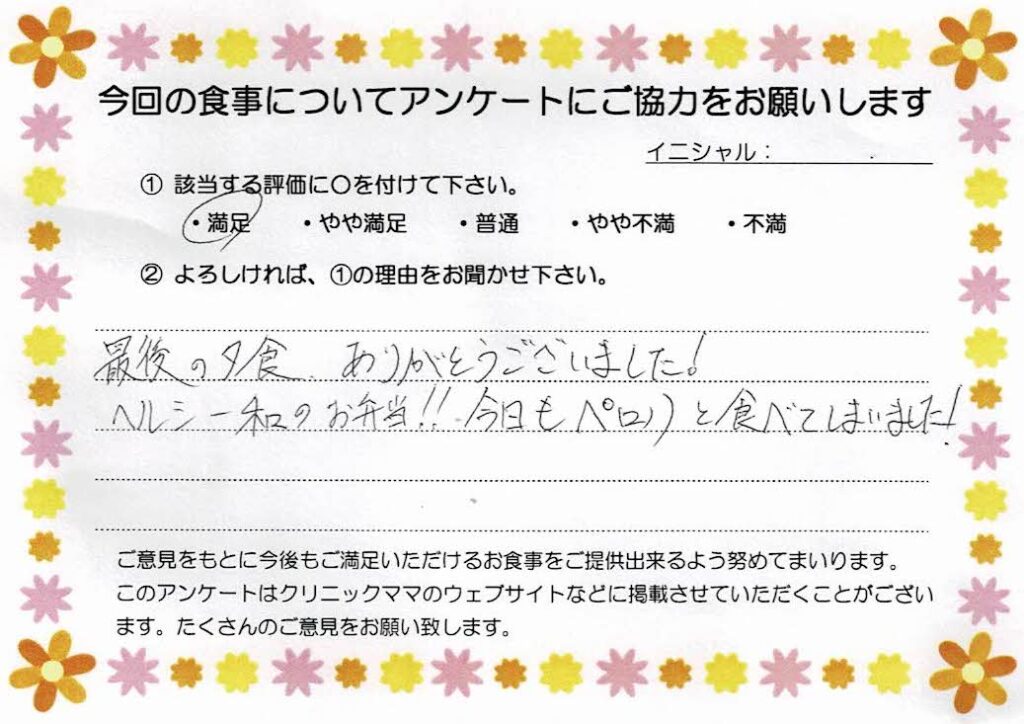 今回の食事についてアンケートにご協力をお願いします
イニシャル：
① 該当する評価に〇を付けて下さい。
・満足 ・やや満足 ・普通 ・やや不満 ・不満
② よろしければ、①の理由をお聞かせ下さい。
最後の夕食、ありがとうございました!
ヘルシー和のお弁当!! 今日もペロリと食べてしまいました!
ご意見をもとに今後もご満足いただけるお食事をご提供出来るよう努めてまいります。
このアンケートはクリニックママのウェブサイトなどに掲載させていただくことがござい
ます。たくさんのご意見をお願い致します。